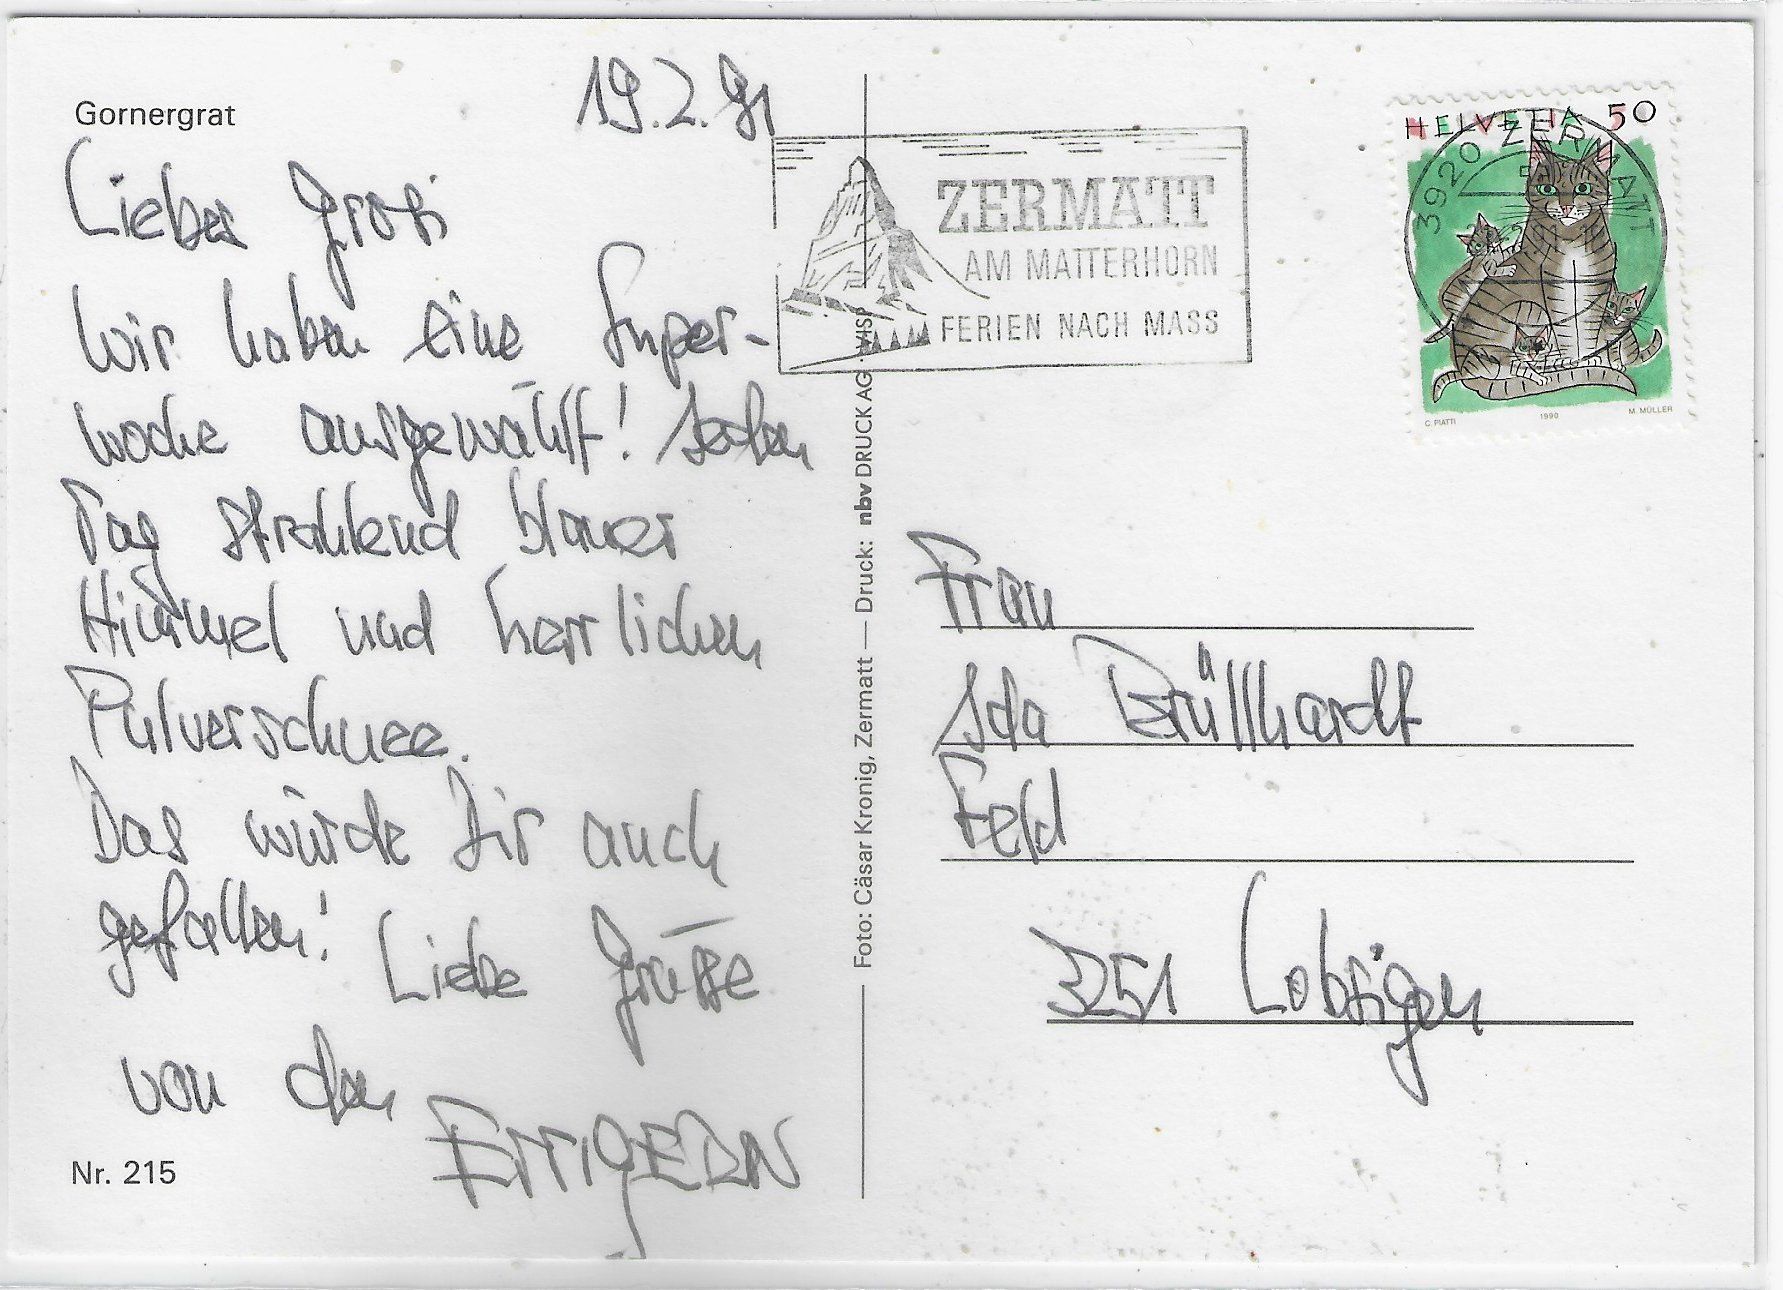 Gornergrat
19.2.91
Liebes Grosi
Wir haben eine Super-
woche ausgewählt! Jeden
Tag strahlend blauer
Himmel und herrlichen
Pulverschnee.
Das würde Dir auch
gefallen!
Liebe Grüsse
von den
ETTIGERN
Nr. 215
Foto: Cäsar Kronig, Zermatt — Druck: nbv DRUCK AG · VISP
ZERMATT
AM MATTERHORN
FERIEN NACH MASS
HELVETIA 50
3920 ZERMATT
C. PIATTI 1990 M. MÜLLER
Frau
Ida Brüllhardt
Feld
3251 Lobsigen